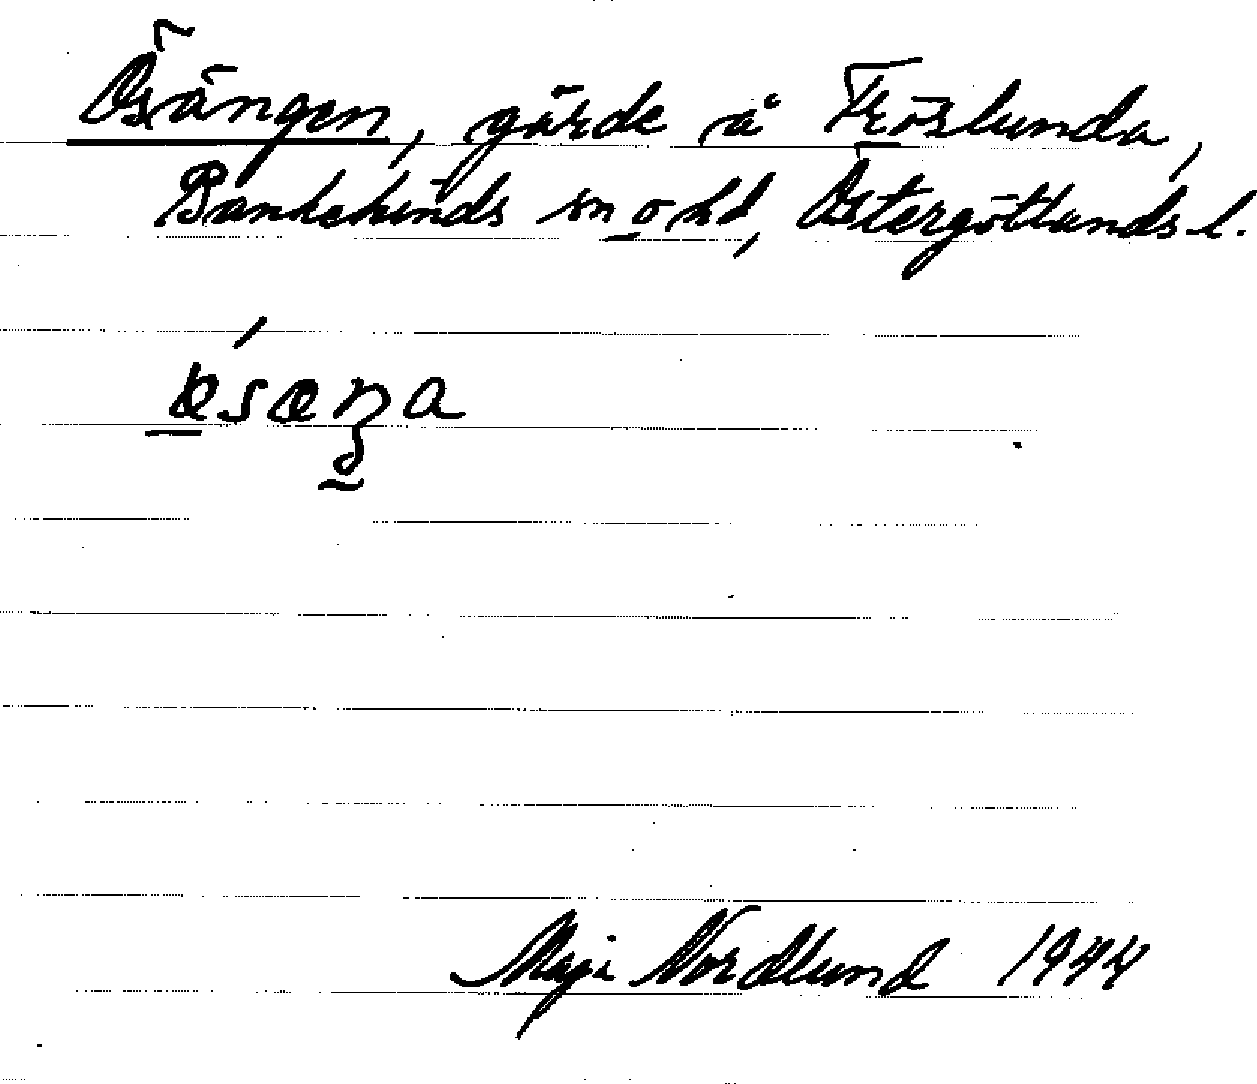 Ösängen, gärde å Fröslunda,
Bankekinds sn o. hd, Östergötlands l.
Maji Nordlund 1944